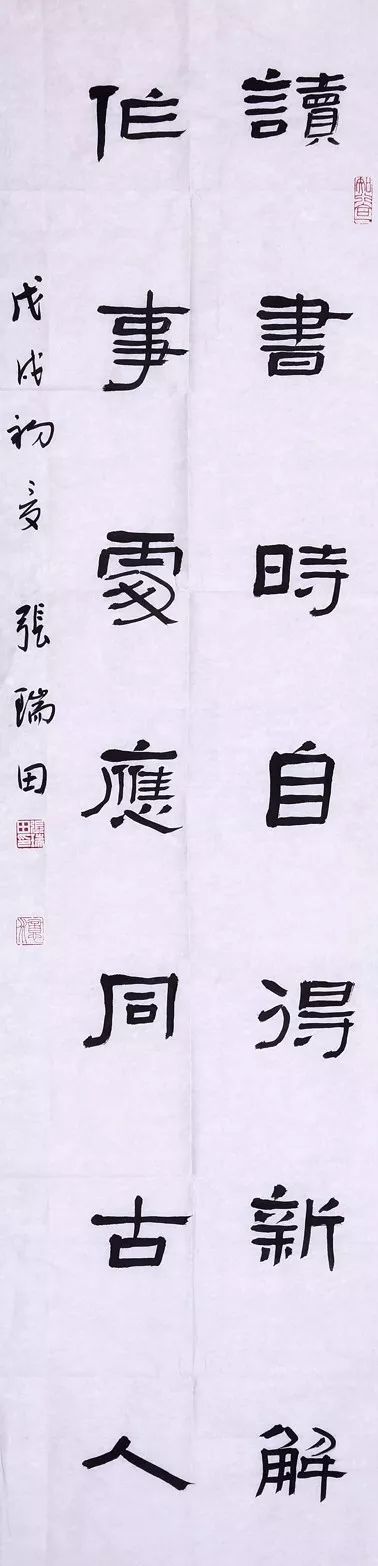 讀書時自得新解
作事處應同古人
戊戌初夏 張瑞田